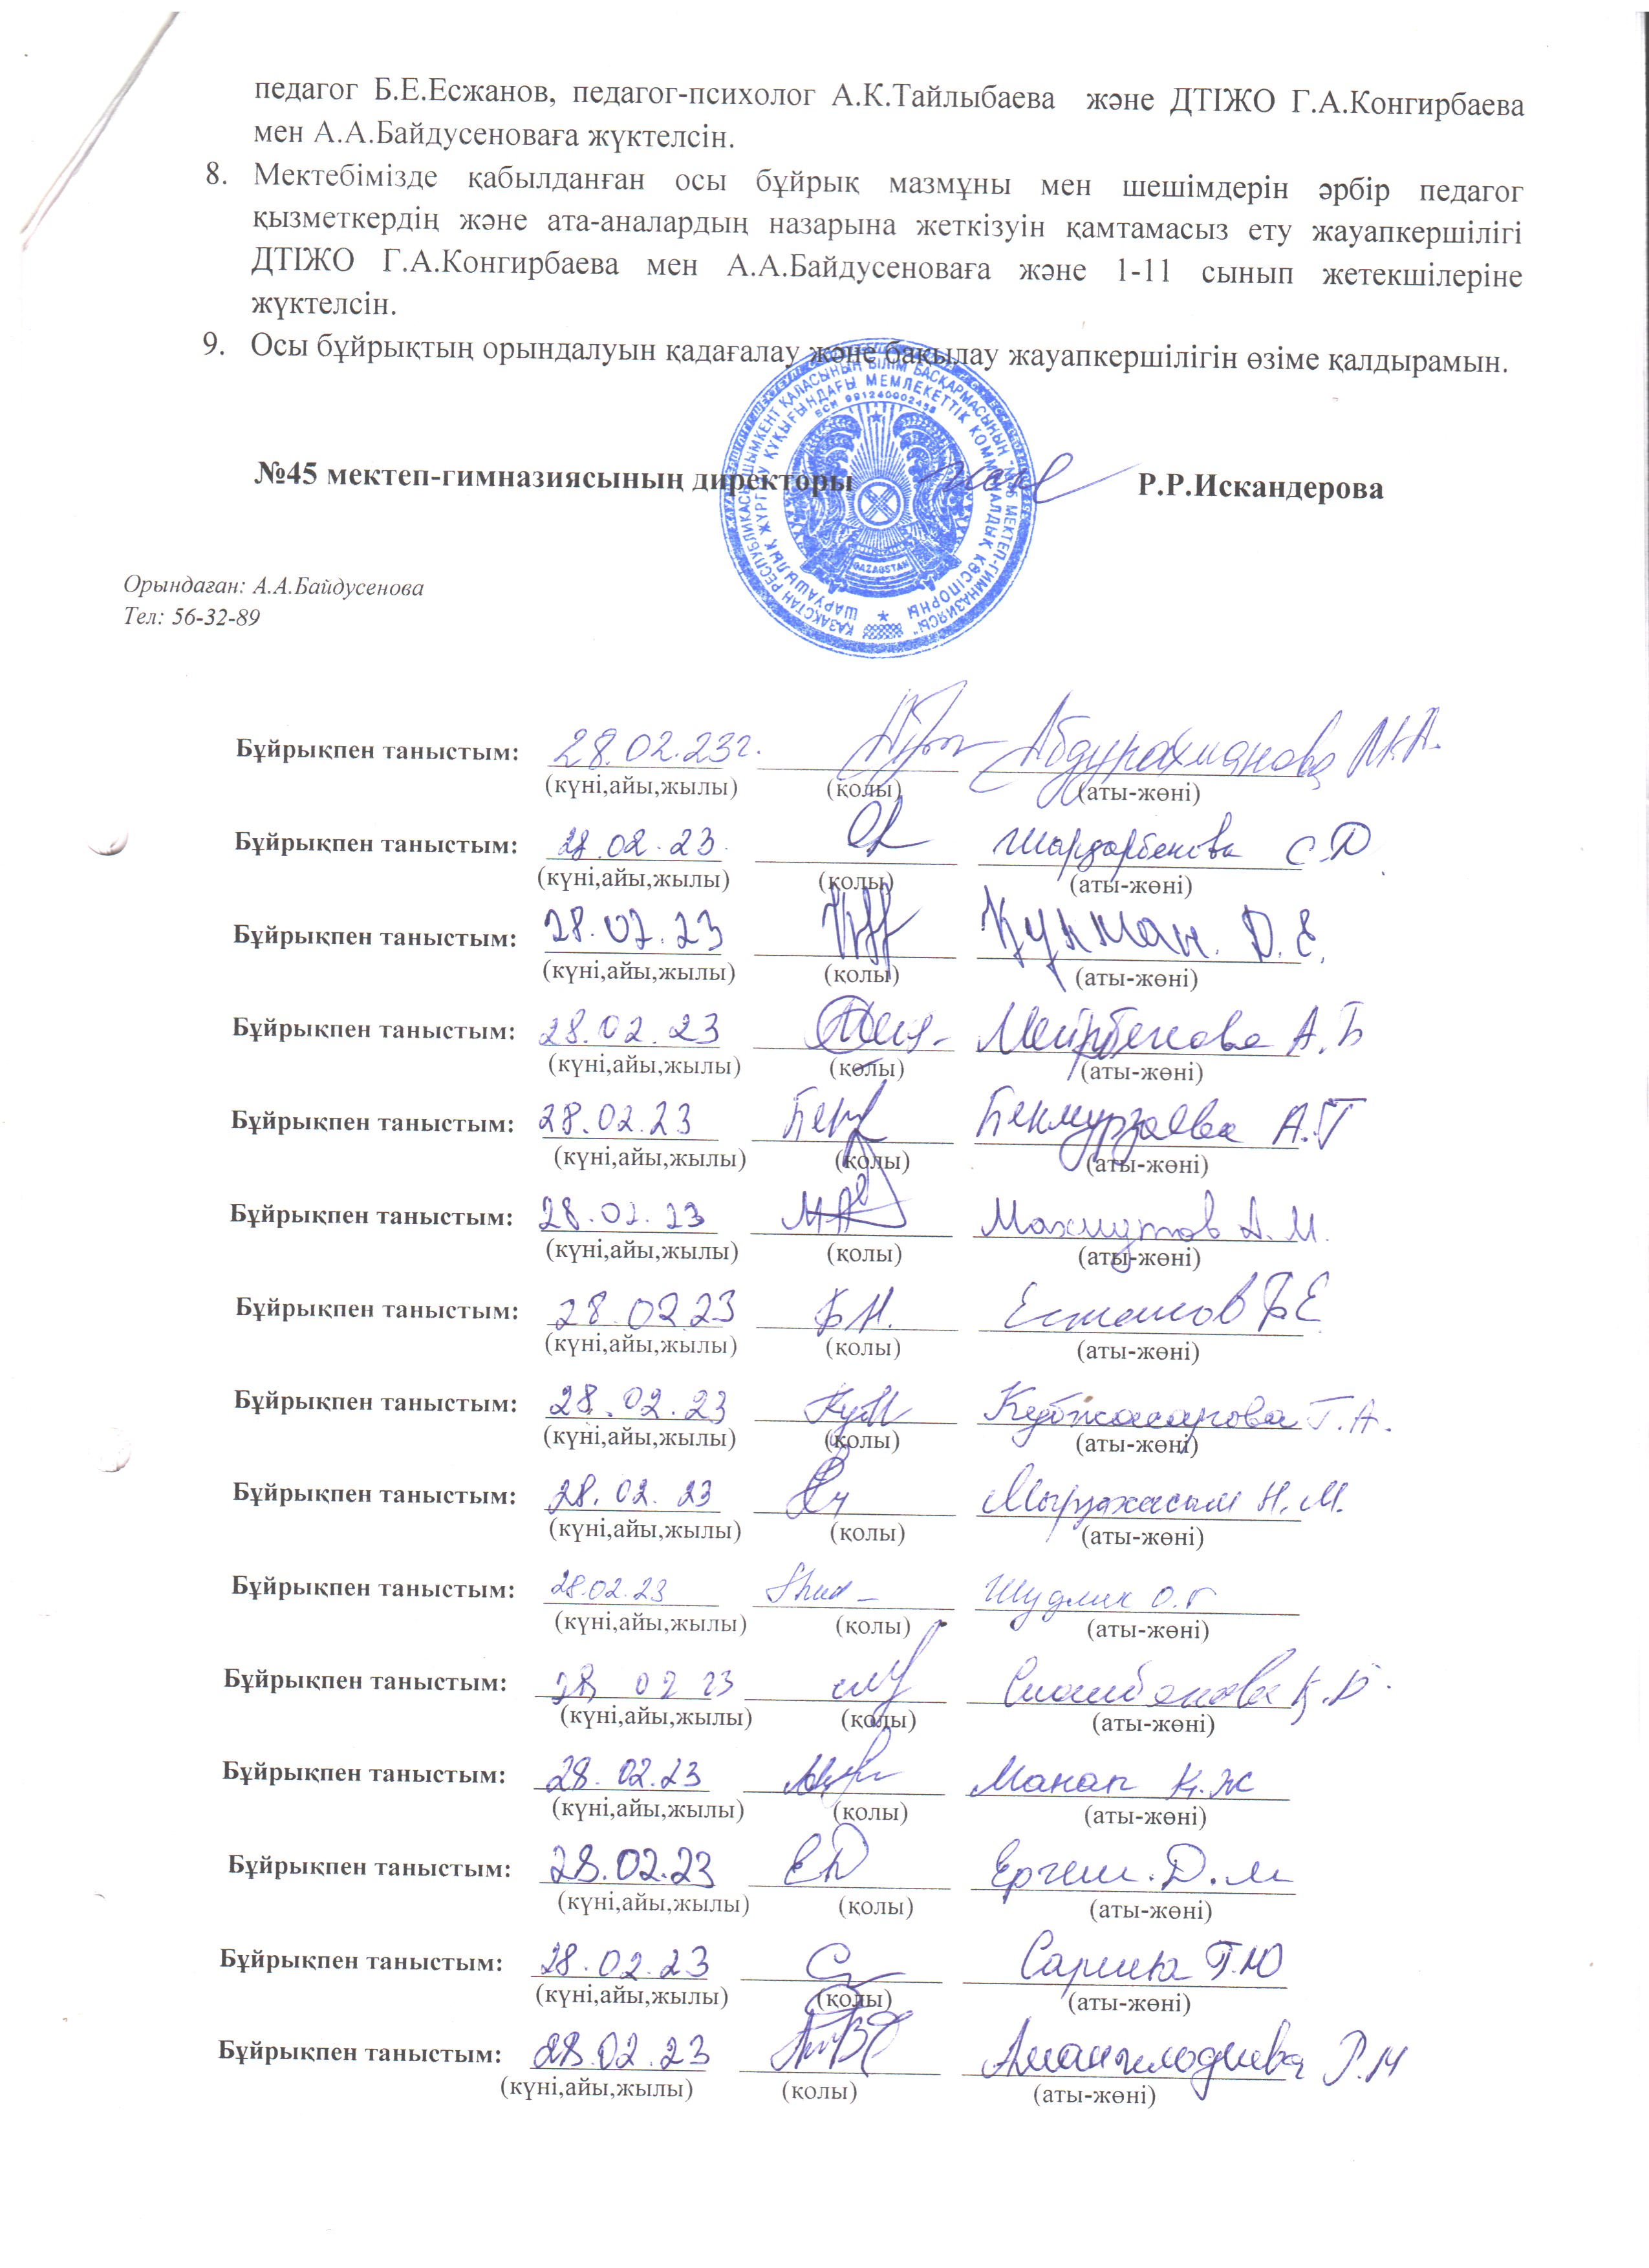 педагог Б.Е.Есжанов, педагог-психолог А.К.Тайлыбаева және ДТІЖО Г.А.Конгирбаева
мен А.А.Байдусеноваға жүктелсін.
8. Мектебімізде қабылданған осы бұйрық мазмұны мен шешімдерін әрбір педагог
қызметкердің және ата-аналардың назарына жеткізуін қамтамасыз ету жауапкершілігі
ДТІЖО Г.А.Конгирбаева мен А.А.Байдусеноваға және 1-11 сынып жетекшілеріне
жүктелсін.
9. Осы бұйрықтың орындалуын қадағалау және бақылау жауапкершілігін өзіме қалдырамын.
№45 мектеп-гимназиясының директоры Р.Р.Искандерова
QAZAQSTAN
Орындаған: А.А.Байдусенова
Тел: 56-32-89
Бұйрықпен таныстым: 28.02.23г. Абдурахманова М.А.
(күні,айы,жылы) (қолы) (аты-жөні)
Бұйрықпен таныстым: 28.02.23 С.Д
(күні,айы,жылы) (қолы) (аты-жөні)
Бұйрықпен таныстым: 28.02.23 Д.Е.
(күні,айы,жылы) (қолы) (аты-жөні)
Бұйрықпен таныстым: 28.02.23 Мейрбекова А.Б
(күні,айы,жылы) (қолы) (аты-жөні)
Бұйрықпен таныстым: 28.02.23 Бекмурзаева А.Т
(күні,айы,жылы) (қолы) (аты-жөні)
Бұйрықпен таныстым: 28.02.23 Махмутов А.М.
(күні,айы,жылы) (қолы) (аты-жөні)
Бұйрықпен таныстым: 28.02.23 Есжанов Б.Е
(күні,айы,жылы) (қолы) (аты-жөні)
Бұйрықпен таныстым: 28.02.23 Г.А.
(күні,айы,жылы) (қолы) (аты-жөні)
Бұйрықпен таныстым: 28.02.23 Мырзахасым Н.М.
(күні,айы,жылы) (қолы) (аты-жөні)
Бұйрықпен таныстым: 28.02.23 О.Г
(күні,айы,жылы) (қолы) (аты-жөні)
Бұйрықпен таныстым: 28 02 23 Қ.Б.
(күні,айы,жылы) (қолы) (аты-жөні)
Бұйрықпен таныстым: 28.02.23 Манап Қ.Ж
(күні,айы,жылы) (қолы) (аты-жөні)
Бұйрықпен таныстым: 28.02.23 Ергеш.Д.М
(күні,айы,жылы) (қолы) (аты-жөні)
Бұйрықпен таныстым: 28.02.23 Г.Ю
(күні,айы,жылы) (қолы) (аты-жөні)
Бұйрықпен таныстым: 28.02.23 Р.М
(күні,айы,жылы) (қолы) (аты-жөні)